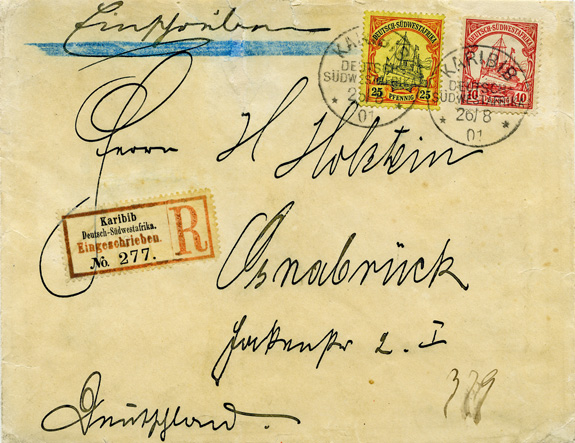 Einschreiben
DEUTSCH-SÜDWESTAFRIKA
25 PFENNIG 25
DEUTSCH-SÜDWESTAFRIKA
10 PFENNIG 10
KARIBIB
DEUTSCH-
SÜDWESTAFRIKA
26/8
01
KARIBIB
DEUTSCH-
SÜDWESTAFRIKA
26/8
01
Herrn H Holstein
Karibib
Deutsch-Südwestafrika.
Eingeschrieben.
No. 277.
R
Osnabrück
2. I
Deutschland.